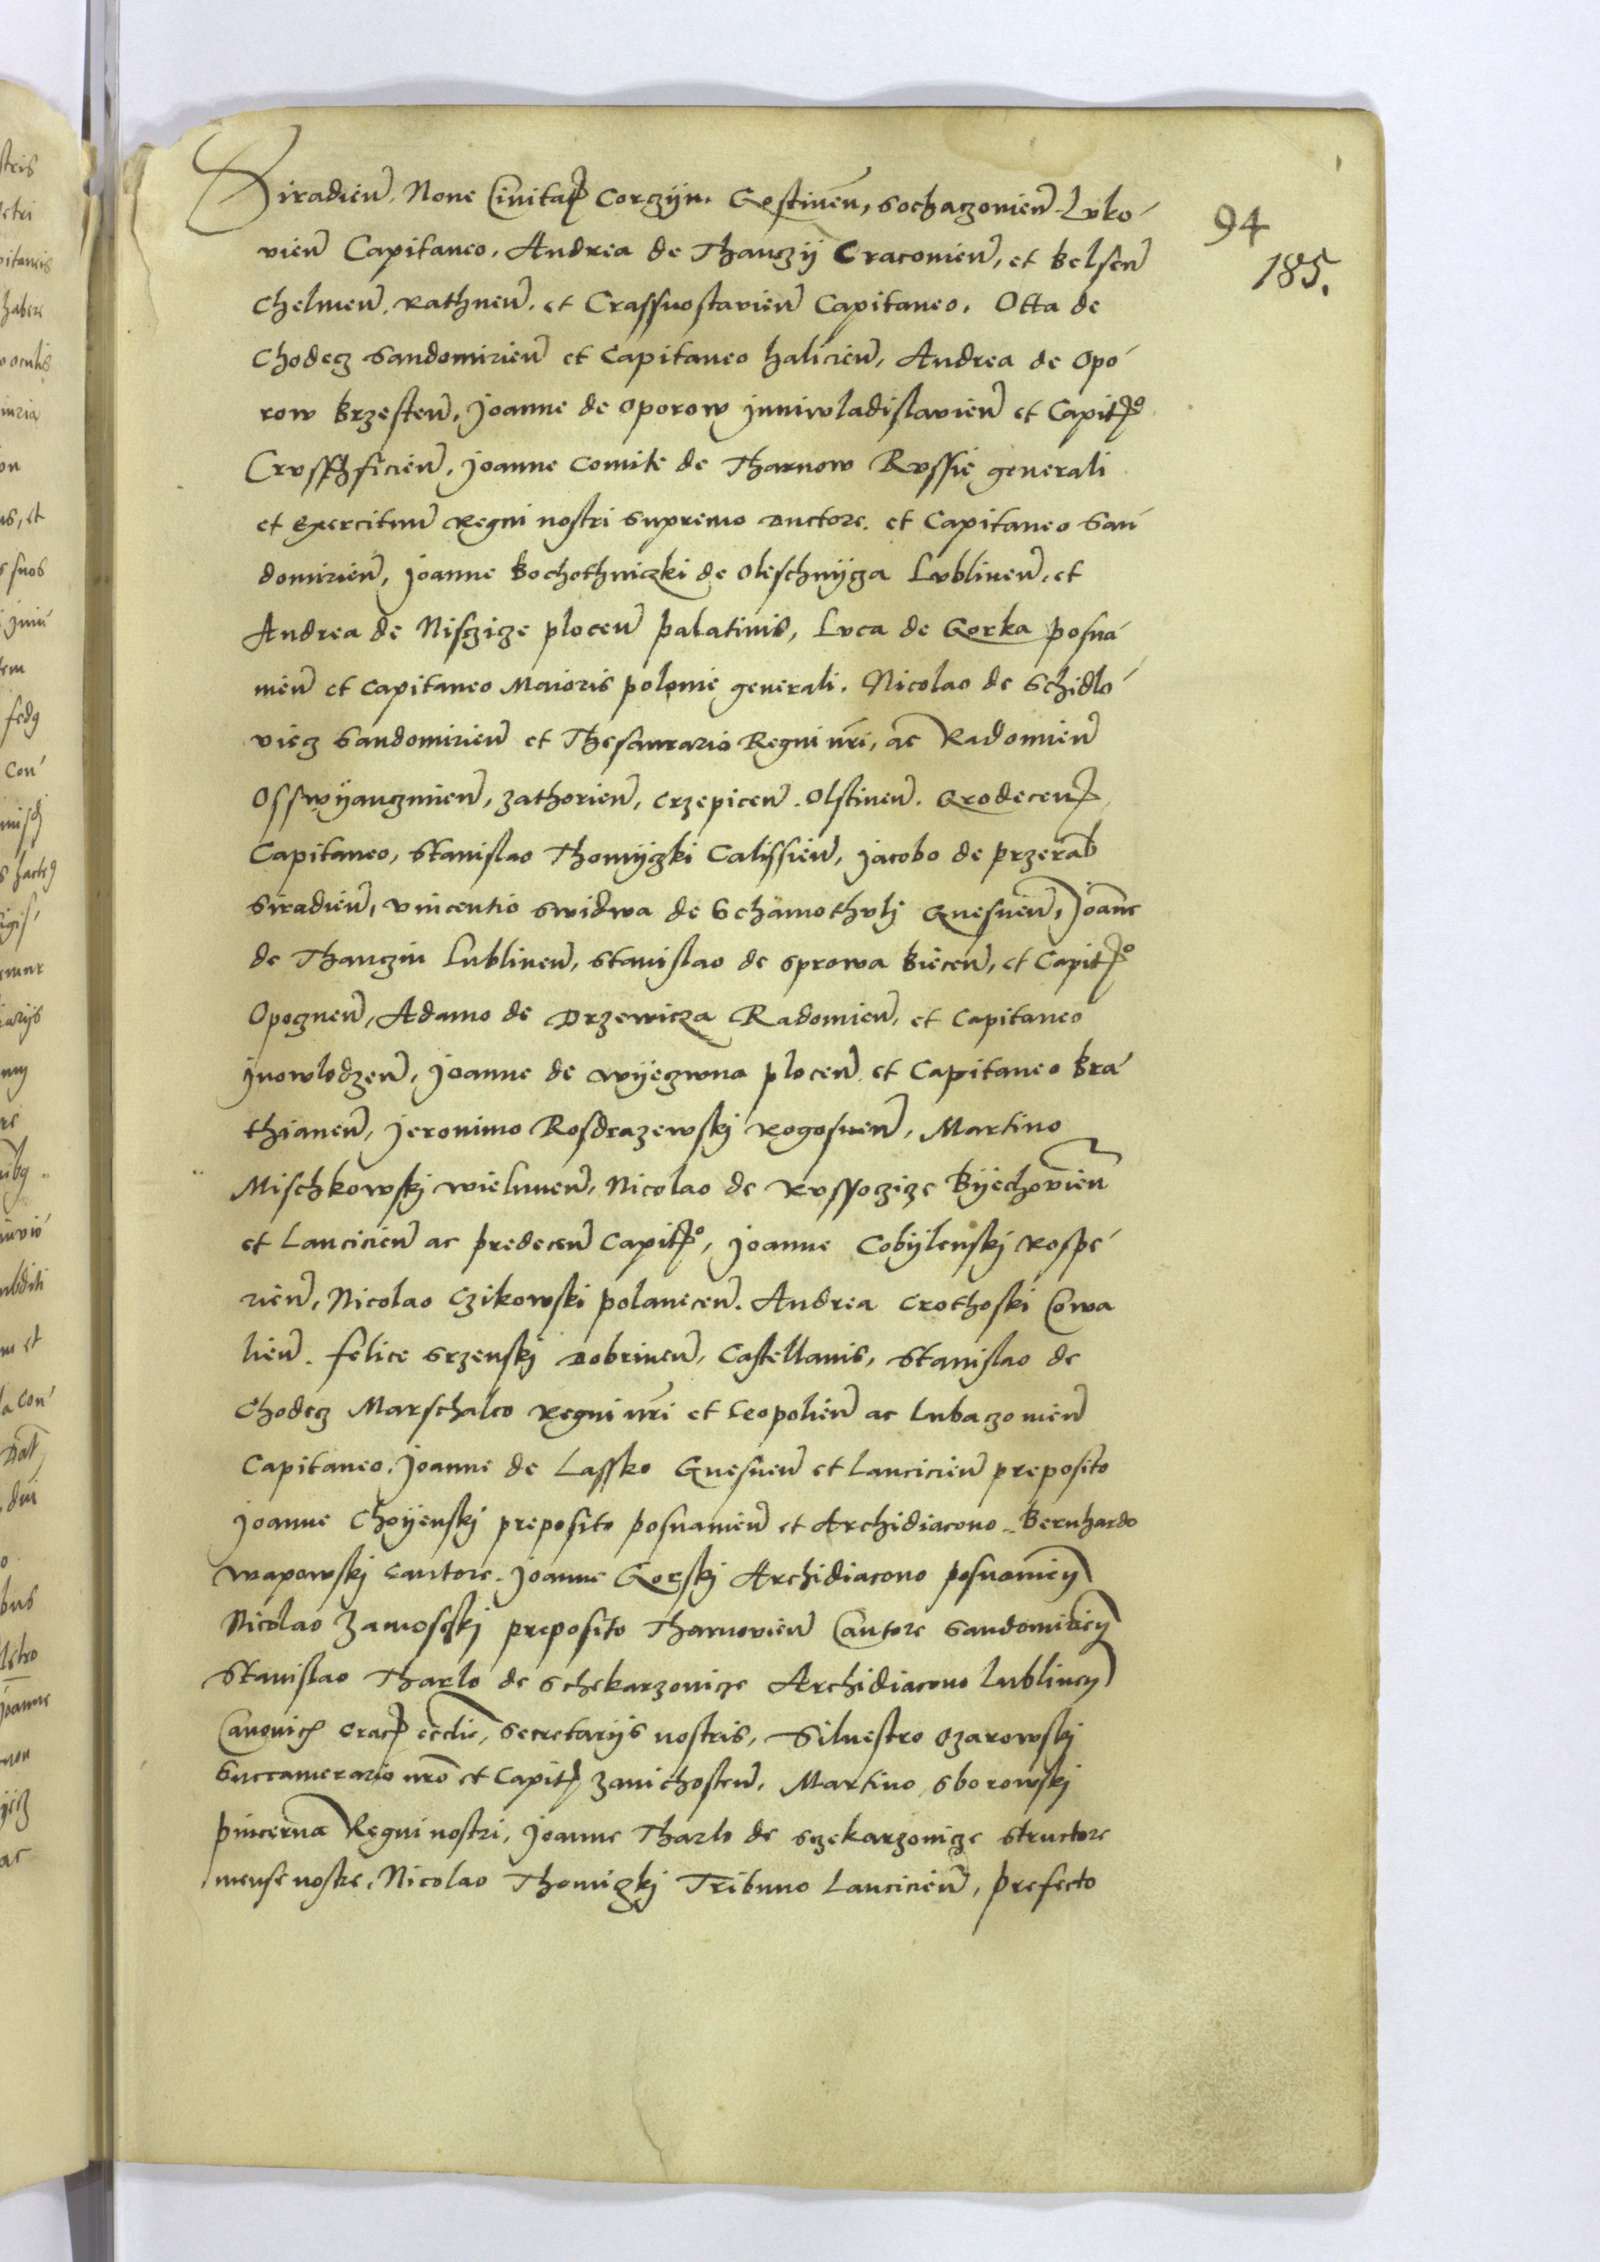 94
185.
Siradien̄. None Civitat̄ Corczyn. Gostinen̄, Sochaczovien̄. Luko-
vien̄ Capitaneo. Andrea de Thanczyn Cracovien̄, et Belsen̄
Chelmen̄. Rathnen̄. et Crassnostavien̄ Capitaneo. Otta de
Chodecz Sandomirien̄ et Capitaneo halicien̄, Andrea de Opo-
row Brzesten̄, Joanne de Oporow Juniwladislavien̄ et Capit̄o
Crusszficien̄, Joanne Comite de Tharnow Russię generali
et Exercituum Regni nostri supremo Ductore. et Capitaneo San-
domirien̄, Joanne Bochothniczki de Oleschnycza Lublinen̄, et
Andrea de Nisczicze plocen̄ palatinis, Luca de Gorka posna-
nien̄ et Capitaneo Maioris polonię generali. Nicolao de Schidlo-
viecz Sandomirien̄ et Thesaurario Regni nr̄i, ac Radomien̄
Osswyanczimien̄, Zathorien̄, Crzepicen̄. Olstinen̄. Grodecen̄
Capitaneo, Stanislao Thomyczki Calissien̄, Jacobo de przeramb
Siradien̄, Vincentio Swidwa de Schamothuli Gnesnen̄, Joanne
de Thanczin Lublinen̄, Stanislao de Sprowa Biecen̄, et Capit̄o
Opocznen̄, Adamo de Drzewicza Radomien̄, et Capitaneo
Jnowlodzen̄, Joanne de Wyeczwna plocen̄ et Capitaneo Bra-
thianen̄, Jeronimo Rosdrazewskj Rogosnen̄, Martino
Mischkowskj Wielunen̄, Nicolao de Russocziçe Byechovien̄
et Lancicien̄ ac predecen̄ Capit̄o, Joanne Cobylenskj Rospe-
rien̄, Nicolao Czikowski polanecen̄. Andrea Crothoski Cowa
lien̄. felice Srzenskj Dobrinen̄, Castellanis, Stanislao de
Chodecz Marschalco Regni nr̄i et Leopolien̄ ac Lubaczovien̄
Capitaneo. Joanne de Lassko Gnesnen̄ et Lancicien̄ preposito
Joanne Choyenskj preposito posnanien̄ et Archidiacono. Bernhardo
Wapowskj Cantore. Joanne Gorskj Archidiacono posnanien̄
Nicolao Zamosczkj preposito Tharnovien̄ Cantore Sandomirien̄
Stanislao Tharlo de Schekarzovicze Archidiacono Lublinen̄
Canonicis Crac̄ eccl̄ie, Secretariis nostris, Silvestro Ozarowskj
Succamerario nr̄o et Capit̄ Zavichosten̄, Martino Sborowskj
pincerna Regni nostri, Joanne Tharlo de Sczekarzovicze structore
mense nostre, Nicolao Thomiczkj Tribuno Lancicien̄, prefecto